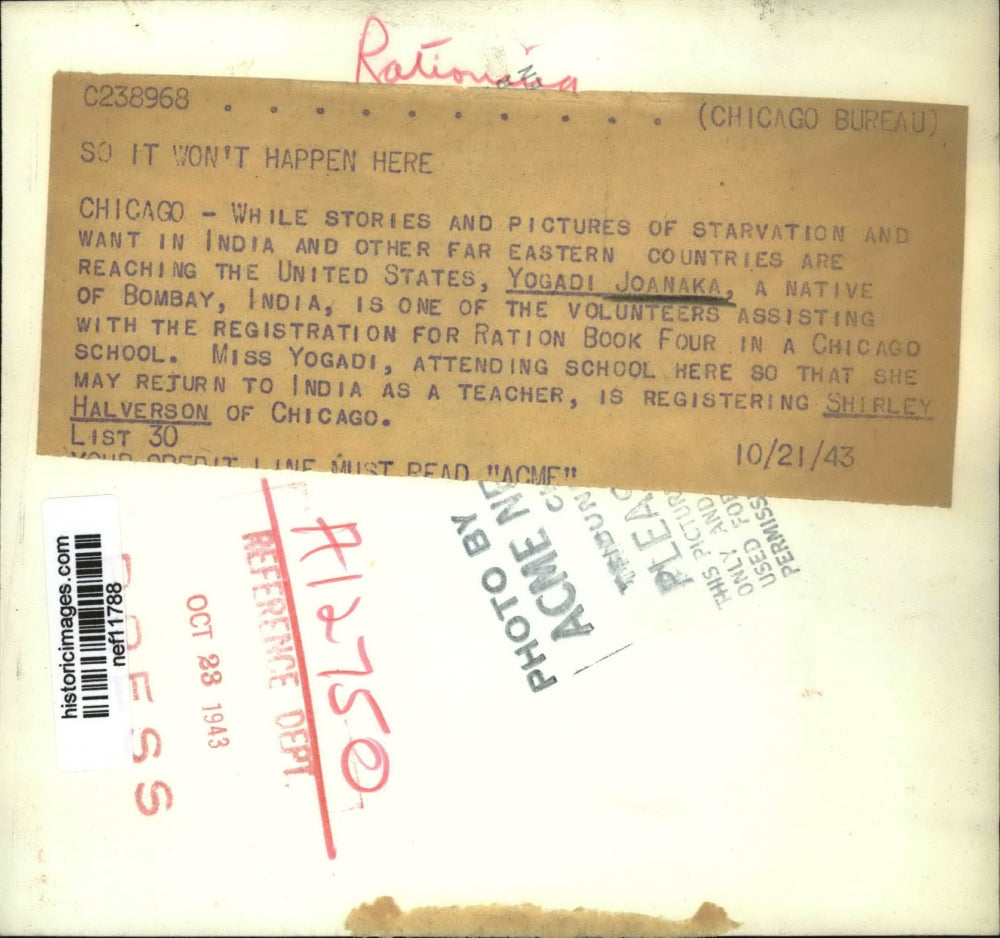 Rationing
C238968 . . . . . . . . . . (CHICAGO BUREAU)
SO IT WON'T HAPPEN HERE
CHICAGO - WHILE STORIES AND PICTURES OF STARVATION AND
WANT IN INDIA AND OTHER FAR EASTERN COUNTRIES ARE
REACHING THE UNITED STATES, YOGADI JOANAKA, A NATIVE
OF BOMBAY, INDIA, IS ONE OF THE VOLUNTEERS ASSISTING
WITH THE REGISTRATION FOR RATION BOOK FOUR IN A CHICAGO
SCHOOL. MISS YOGADI, ATTENDING SCHOOL HERE SO THAT SHE
MAY RETURN TO INDIA AS A TEACHER, IS REGISTERING SHIRLEY
HALVERSON OF CHICAGO.
LIST 30 10/21/43
YOUR CREDIT LINE MUST READ "ACME"
historicimages.com
nef11788
PRESS
OCT 28 1943
REFERENCE DEPT
A12750
PHOTO BY
ACME
THIS PICTURE
ONLY AND
USED FOR
PERMISS